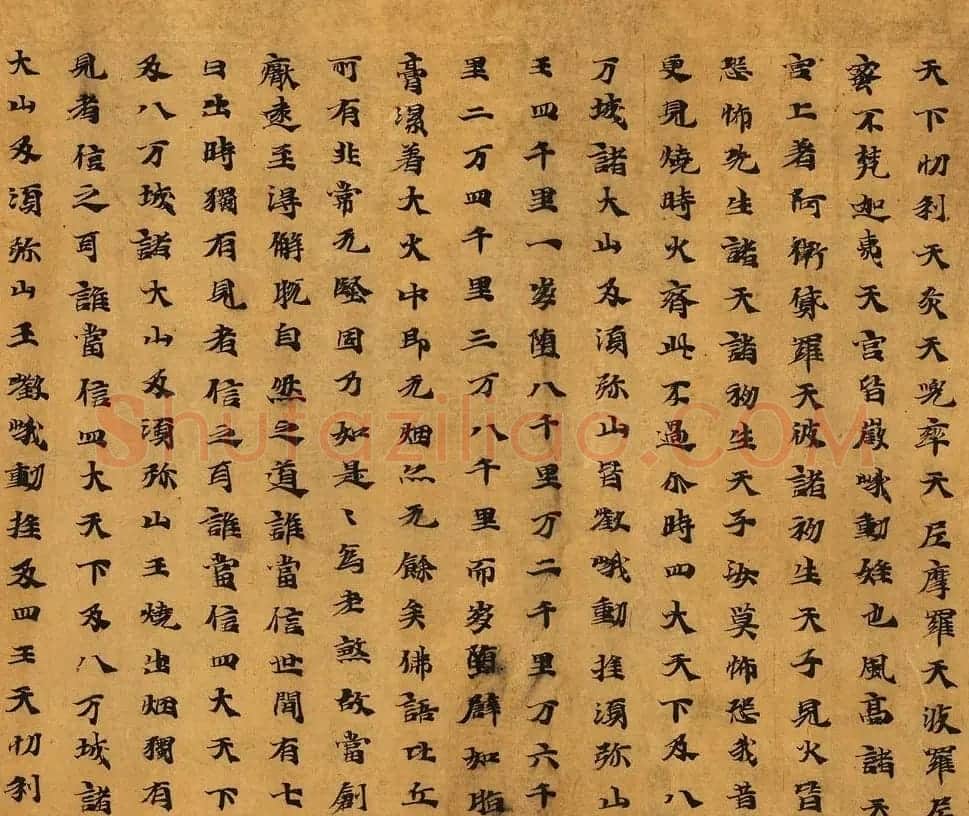 天下忉利天炎天兜率天尼摩羅天波羅尼
蜜不梵迦夷天宮皆嶶峨動𡉏也風髙諸天
宮上着阿衛貨羅天彼諸初生天子見火皆
恐怖先生諸天語初生天子汝莫怖恐我昔
更見燒時火齊此不過尒時四大天下及八
万城諸大山及湏弥山皆嶶峨動𡉏湏弥山
王四千里一岁堕八千里万二千里万六千
里二万四千里三万八千里而岁堕辟如脂
膏湿着大火中即无烟炁无餘矣佛語比丘
所有非常无堅固乃如是〻為老煞故當創
癡逺至得解脫自然之道誰當信世間有七
日出時獨有見者信之耳誰當信四大天下
及八万城諸大山及湏弥山王燒出烟獨有
見者信之耳誰當信四大天下及八万城諸
大山及湏弥山王嶶峨動𡉏及四王天忉利
Shufaziliao.COM